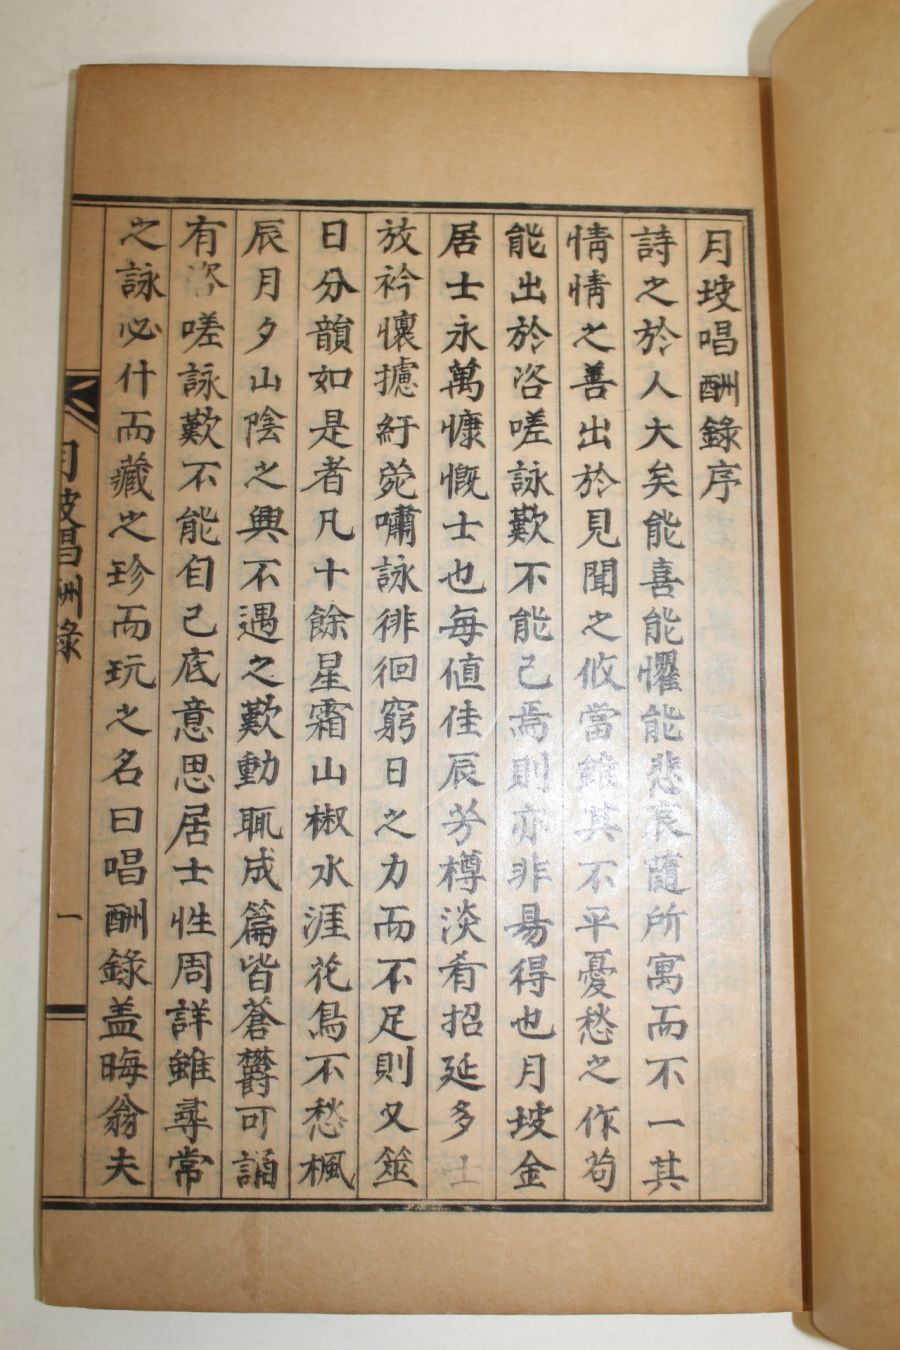 月坡唱酬錄序
詩之於人大矣能喜能懼能悲哀隨所寓而不一其
情情之善出於見聞之攸當雖其不平憂愁之作苟
能出於咨嗟詠歎不能已焉則亦非易得也月坡金
居士永萬慷慨士也每値佳辰芳樽淡肴招延多士
放衿懷攄紆菀嘯詠徘徊窮日之力而不足則又筮
日分韻如是者凡十餘星霜山椒水涯花鳥不愁楓
辰月夕山陰之興不遇之歎動輒成篇皆蒼欝可誦
有咨嗟詠歎不能自已底意思居士性周詳雖尋常
之詠必什而藏之珍而玩之名曰唱酬錄盖晦翁夫
月坡唱酬錄
一